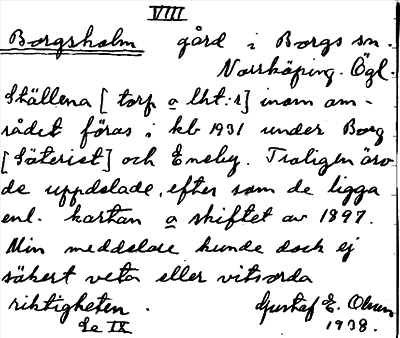 VIII
Borgsholm gård i Borgs sn.
Norrköping. Ögl.
Ställena [torp o lht:r] inom om-
rådet föras i kb 1931 under Borg
[Säteriet] och Eneby. Troligen äro
de uppdelade, efter som de ligga
enl. kartan o skiftet av 1897.
Min meddelare kunde dock ej
säkert veta eller vitsorda
riktigheten. Gustaf E. Olsson
Se IX 1938.